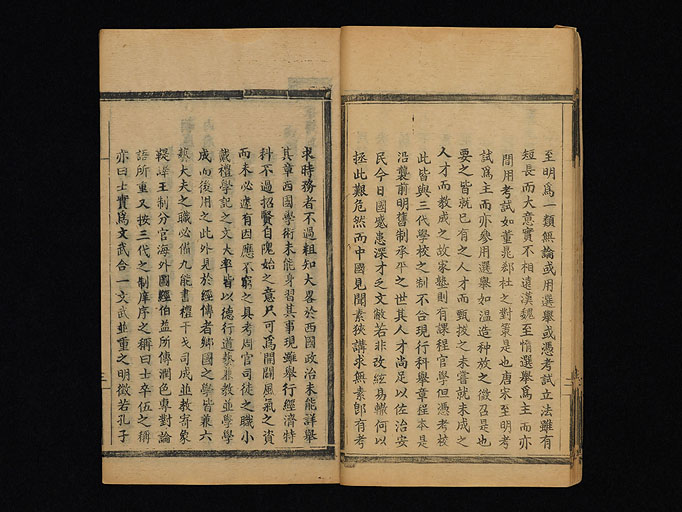 至明爲一類無論或用選舉或憑考試立法雖有
短長而大意實不相遠漢魏至隋選舉爲主而亦
間用考試如董晁郄杜之對策是也唐宋至明考
試爲主而亦參用選舉如溫造种放之徵召是也
要之皆就已有之人才而甄拔之未嘗就未成之
人才而教成之故家塾則有課程官學但憑考校
此皆與三代學校之制不合現行科舉章程本是
沿襲前明舊制承平之世其人才尚足以佐治安
民今日國蹙患深才乏文敝若非改絃易轍何以
拯此艱危然而中國見聞素狹講求無素卽有考
求時務者不過粗知大畧於西國政治未能詳舉
其章西國學術未能身習其事現雖舉行經濟特
科不過招賢自隗始之意只可爲開闢風氣之資
而未必遽有因應不窮之具考周官司徒之職小
戴禮學記之文大率皆以德行道藝兼教並學學
成而後用之此外見於經傳者鄉國之學皆兼六
藝大夫之職必備九能書禮干戈司成並教寄象
鞮譯王制分官海外圖經伯益所傳潤色專對論
語所重又按三代之制庠序之稱曰士卒伍之稱
亦曰士實爲文武合一文武並重之明徵若孔子
二
三